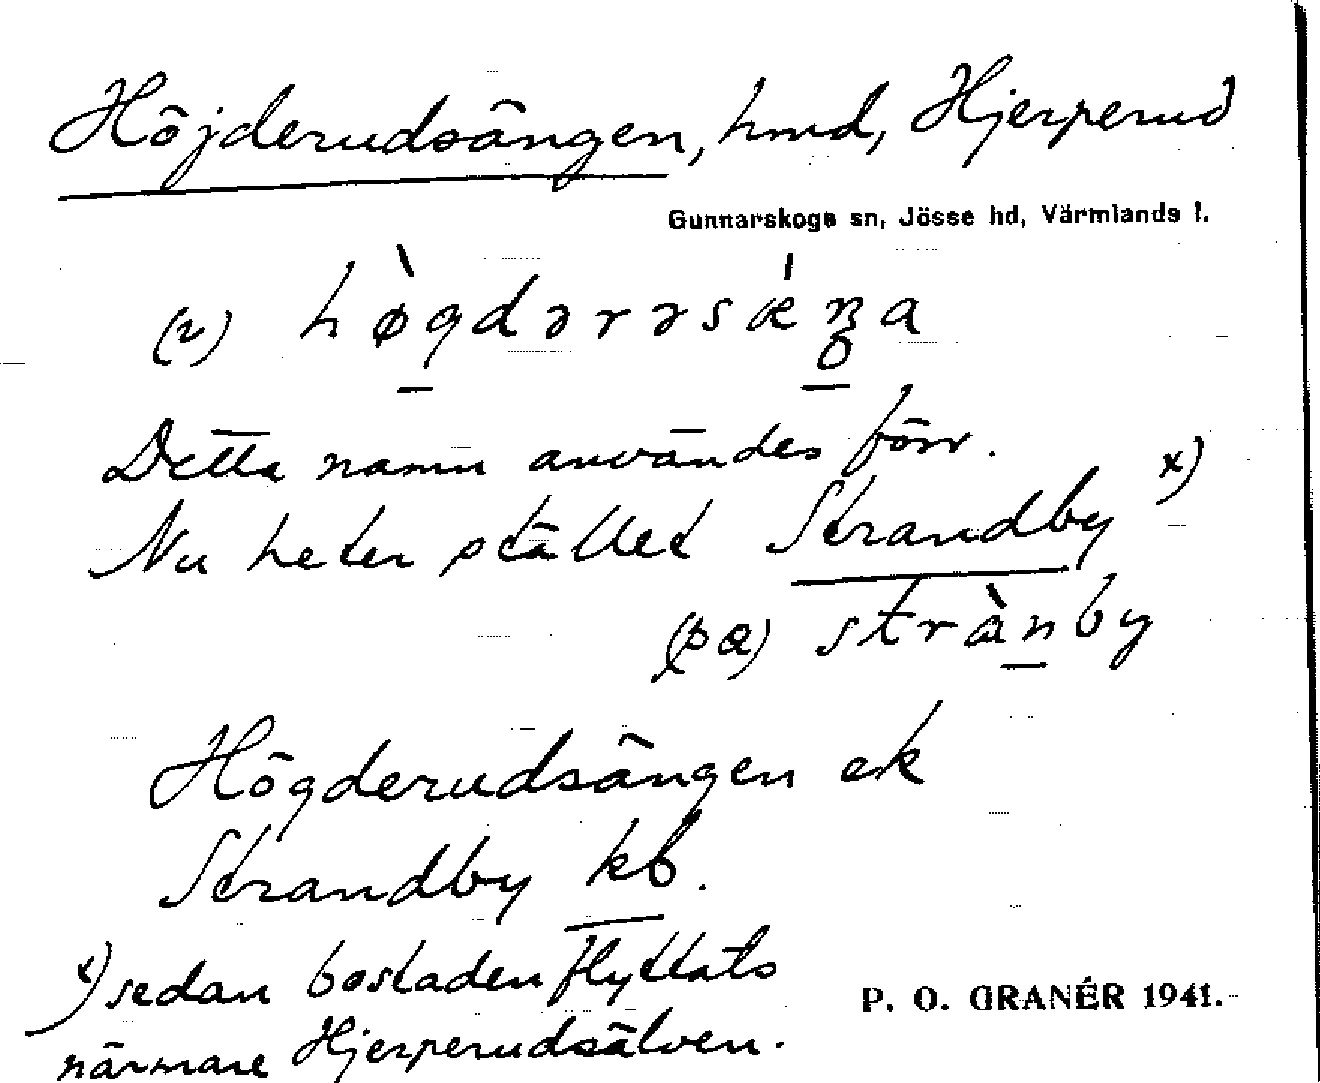 Höjderudsängen, hmd, Hjerperud
Gunnarskogs sn, Jösse hd, Värmlands l.
(i) hø̀gdərəsǽŋ̥a
Detta namn användes förr.
Nu heter stället Strandby x)
(på) strànby
Högderudsängen ek
Strandby kb.
x) sedan bostaden flyttats
närmare Hjerperudsälven.
P. O. GRANÉR 1941.